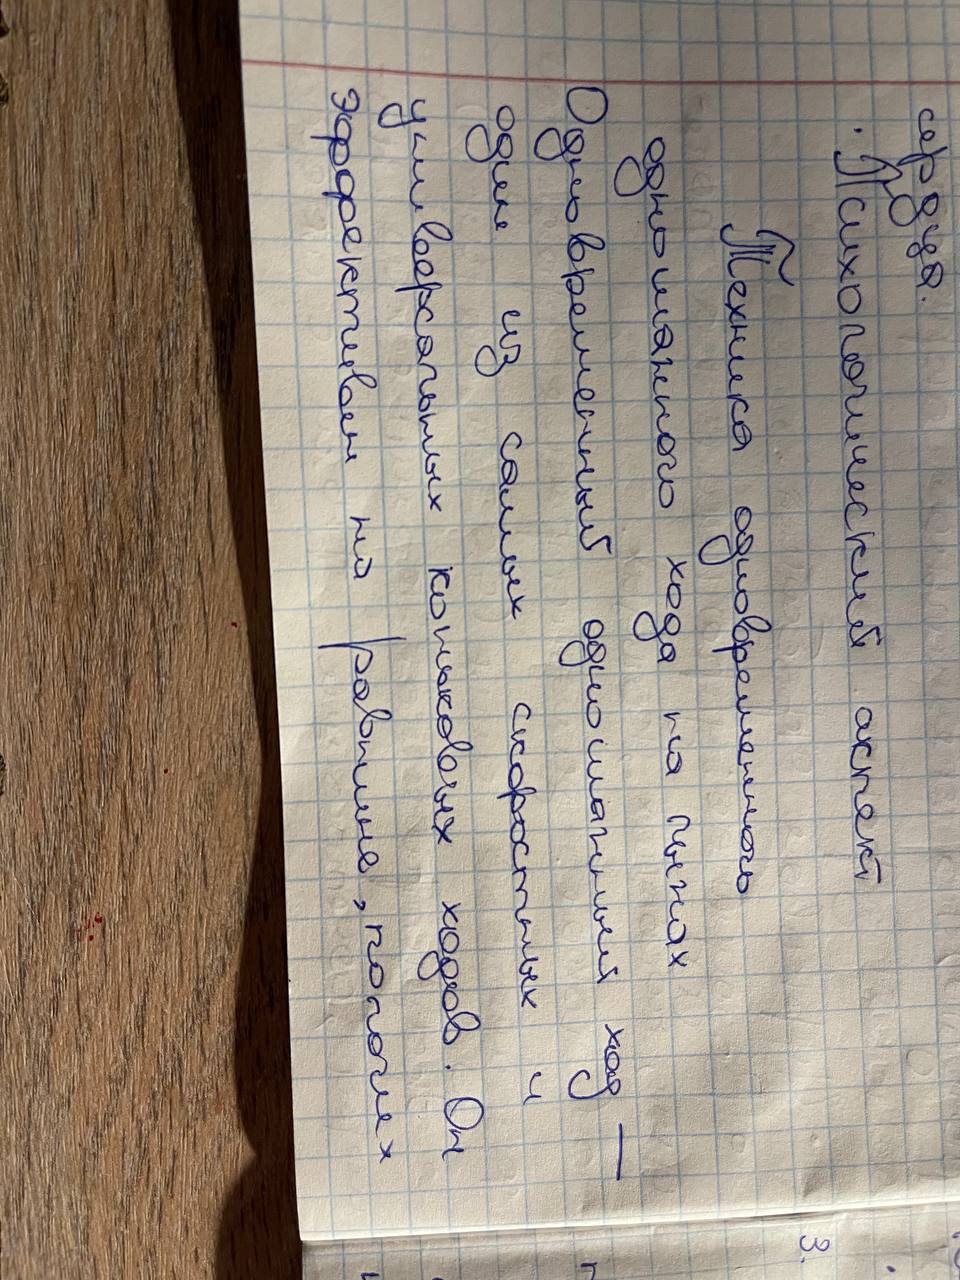 сердца.
· Психологический аспект
Техника одновременного
одношажного хода на лыжах
Одновременный одношажный ход —
один из самых скоростных и
универсальных коньковых ходов. Он
эффективен на равнине, пологих
3.